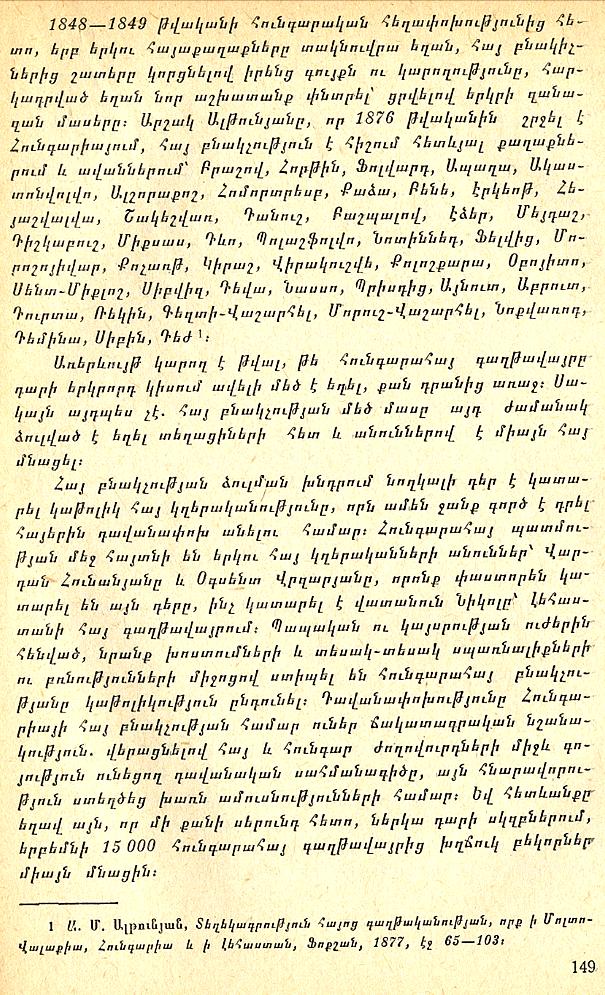 1848—1849 թվականի Հունգարական հեղափոխությունից հե-
տո, երբ երկու հայաքաղաքները տակնուվրա եղան, հայ բնակիչ-
ներից շատերը կորցնելով իրենց գույքն ու կարողությունը, հար-
կադրված եղան նոր աշխատանք փնտրել՝ ցրվելով երկրի զանա-
զան մասերը։ Արշակ Ալթունյանը, որ 1876 թվականին շրջել է
Հունգարիայում, հայ բնակչություն է հիշում հետևյալ քաղաքնե-
րում և ավաններում՝ Բրաշով, Հորթին, Ֆոլվարդ, Ապաղա, Ակաս-
տոնվոլվո, Ալշորաքոշ, Հոմորտրեսբ, Քաձա, Բենե, Էրկեոթ, Հե-
յաշվալվա, Շակեշվառ, Դանուշ, Բաշպալով, Էձեր, Մեյդաշ,
Դիշկաբուշ, Միքսաս, Դևո, Պոլաշֆոլվո, Նոտիննեդ, Ֆելվից, Մո-
րոշոյիվար, Քոչառթ, Կիրաշ, Վիրակուշվե, Քոլոշքարա, Օբոյիտո,
Սենտ-Միքլոշ, Սիբվիզ, Դեվա, Նասսո, Պրիսդից, Այնուտ, Աբրուտ,
Դուրտա, Ռեկին, Դեղտի-Վաշարհել, Մորուշ-Վաշարհել, Նոքվառոդ,
Դեմինա, Սիբին, Դեժ ¹։
Առերևույթ կարող է թվալ, թե հունգարահայ գաղթավայրը
դարի երկրորդ կիսում ավելի մեծ է եղել, քան դրանից առաջ։ Սա-
կայն այդպես չէ. հայ բնակչության մեծ մասը այդ ժամանակ
ձուլված է եղել տեղացիների հետ և անուններով է միայն հայ
մնացել։
Հայ բնակչության ձուլման խնդրում նողկալի դեր է կատա-
րել կաթոլիկ հայ կղերականությունը, որն ամեն ջանք գործ է դրել
հայերին դավանափոխ անելու համար։ Հունգարահայ պատմու-
թյան մեջ հայտնի են երկու հայ կղերականների անուններ՝ Վար-
դան Հունանյանը և Օգսենտ Վրզարյանը, որոնք փաստորեն կա-
տարել են այն դերը, ինչ կատարել է վատանուն Նիկոլը՝ Լեհաս-
տանի հայ գաղթավայրում։ Պապական ու կայսրության ուժերին
հենված, նրանք խոստումների և տեսակ-տեսակ սպառնալիքների
ու բռնությունների միջոցով ստիպել են հունգարահայ բնակչու-
թյանը կաթոլիկություն ընդունել։ Դավանափոխությունը Հունգա-
րիայի հայ բնակչության համար ուներ ճակատագրական նշանա-
կություն. վերացնելով հայ և հունգար ժողովուրդների միջև գո-
յություն ունեցող դավանական սահմանագիծը, այն հնարավորու-
թյուն ստեղծեց խառն ամուսնությունների համար։ Եվ հետևանքը
եղավ այն, որ մի քանի սերունդ հետո, ներկա դարի սկզբներում,
երբեմնի 15 000 հունգարահայ գաղթավայրից խղճուկ բեկորներ
միայն մնացին։
1 Ա. Մ. Ալթունյան, Տեղեկագրություն հայոց գաղթականության, որք ի Մոլտո-
Վալաքիա, Հունգարիա և ի Լեհաստան, Ֆոքշան, 1877, էջ 65—103։
149